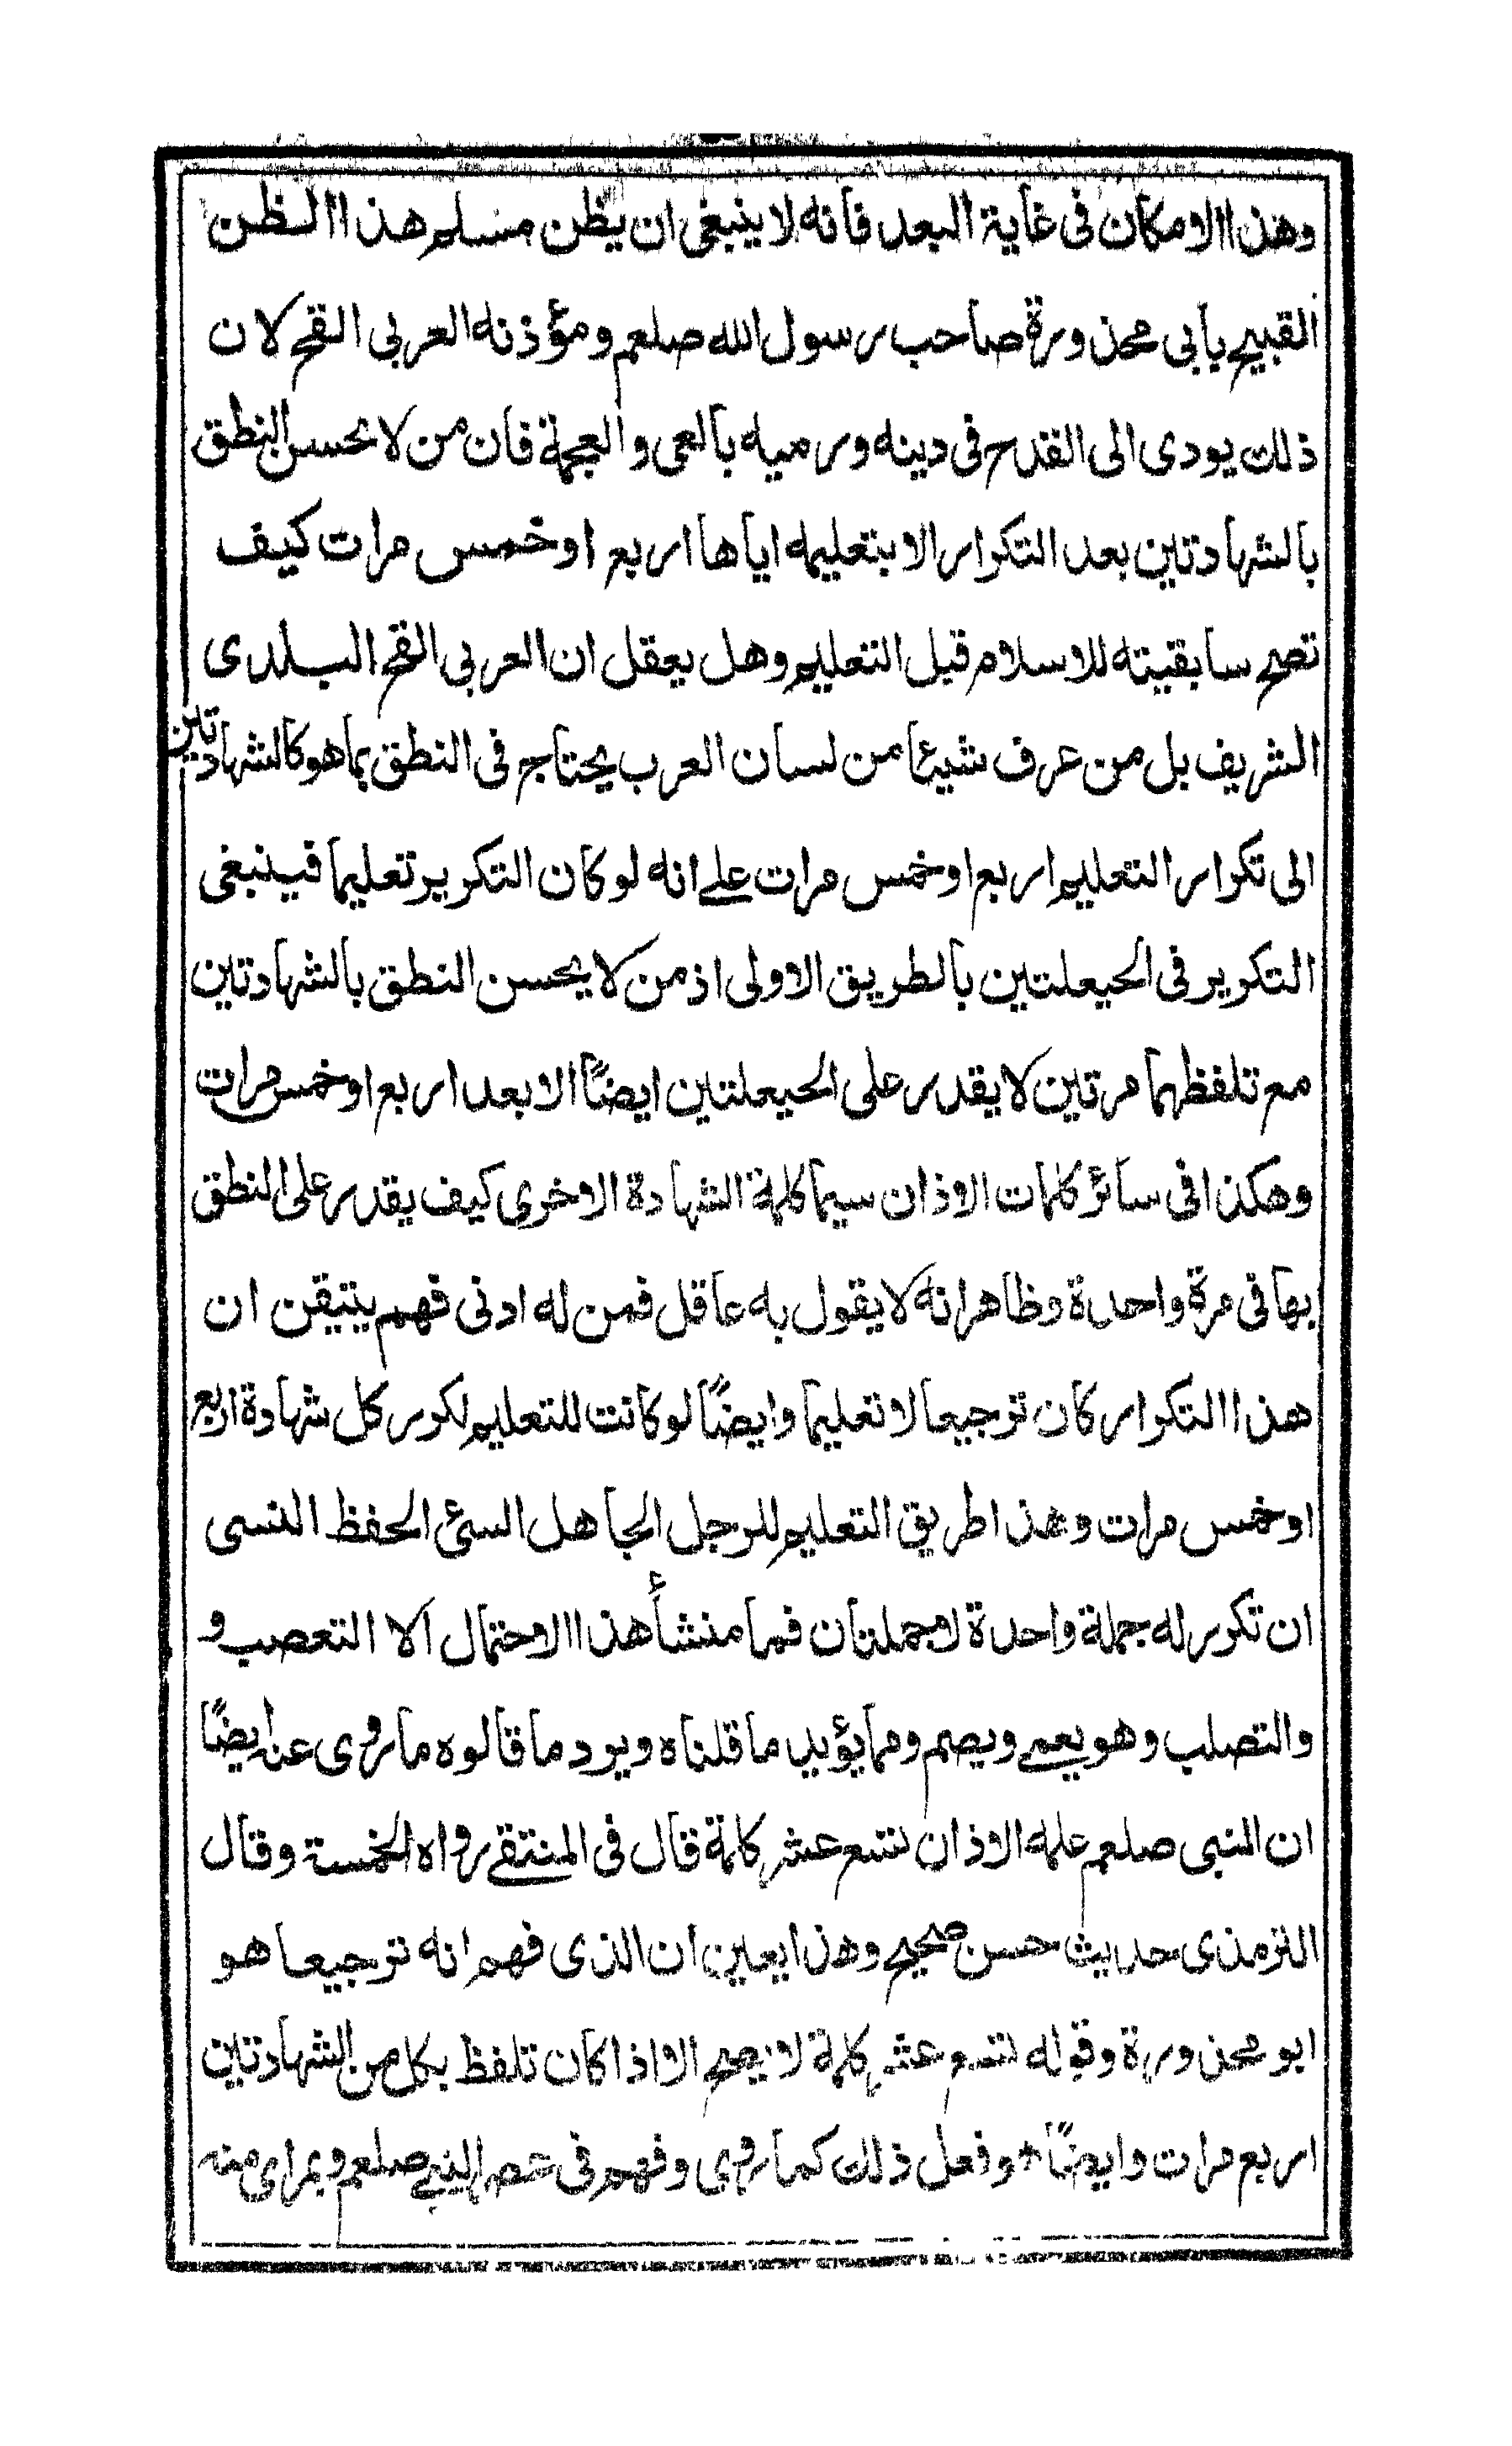 وهذا الامكان فى غاية البعد فانه لا ينبغى ان يظن مسلم هذا الظن
القبيح بابى محذورة صاحب رسول الله صلعم ومؤذنه العربى القح لان
ذلك يودى الى القدح فى دينه ورميه بالعى والعجمة فان من لا يحسن النطق
بالشهادتين بعد التكرار الا بتعليمه اياها اربع او خمس مرات كيف
تصح سابقيته للاسلام قبل التعليم وهل يعقل ان العربى القح البلدى
الشريف بل من عرف شيئا من لسان العرب يحتاج فى النطق بما هو كالشهادتين
الى تكرار التعليم اربع او خمس مرات علے انه لو كان التكرير تعليما فينبغى
التكرير فى الحيعلتين بالطريق الاولى اذ من لا يحسن النطق بالشهادتين
مع تلفظهما مرتين لا يقدر على الحيعلتين ايضًا الا بعد اربع او خمس مرات
وهكذا فى سائر كلمات الاذان سيما كلمة الشهادة الاخرى كيف يقدر على النطق
بها فى مرة واحدة وظاهر انه لا يقول به عاقل فمن له ادنى فهم يتيقن ان
هذا التكرار كان ترجيعا لا تعليما وايضًا لو كانت للتعليم لكرر كل شهادة اربع
او خمس مرات وهذا طريق التعليم للرجل الجاهل السئ الحفظ النسى
ان تكرر له جملة واحدة لا جملتان فما منشأ هذا الاحتمال الا التعصب و
والتصلب وهو يعمے ويصم ومما يؤيد ما قلناه ويرد ما قالوه ما روى عنه ايضًا
ان النبى صلعم علمه الاذان تسع عشر كلمة قال فى المنتقے رواه الخمسة وقال
الترمذى حديث حسن صحيح وهذا يعين ان الذى فهم انه ترجيعا هو
ابو محذورة وقوله تسع عشر كلمة لا يصح الا اذا كان تلفظ بكل من الشهادتين
اربع مرات وايضًا * وفعل ذلك كما روى وفهم فى حصر النبى صلعم وبمراى منه